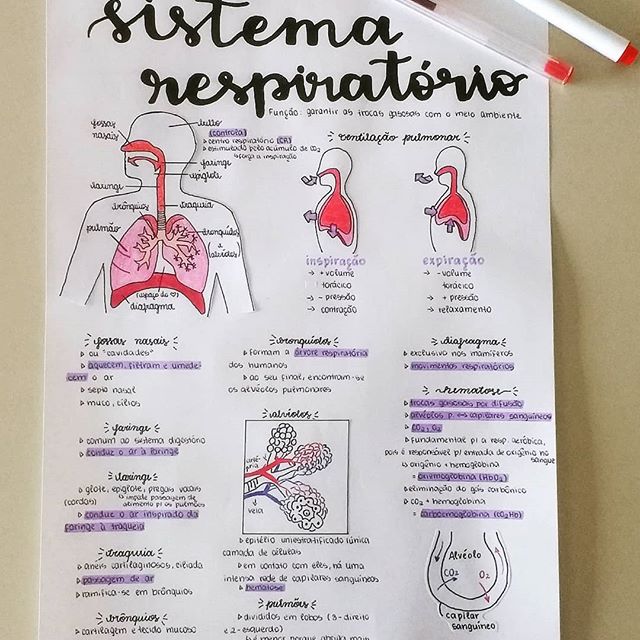 sistema
respiratório
Função: garantir as trocas gasosas com o meio ambiente
fossas
nasais
bulbo
(controla)
centro respiratório (CR)
estimulado pelo acúmulo de CO₂
força a inspiração
faringe
epiglote
laringe
brônquios
traqueia
bronquíolos
e
(alvéolos)
pulmão
(espaço do ♡)
diafragma
ventilação pulmonar
inspiração
→ + volume
torácico
→ - pressão
→ contração
expiração
→ - volume
torácico
→ + pressão
→ relaxamento
fossas nasais
▹ ou "cavidades"
▹ aquecem, filtram e umede-
cem o ar
▹ septo nasal
▹ muco, cílios
faringe
▹ comum ao sistema digestório
▹ conduz o ar à laringe
laringe
▹ glote, epiglote, pregas vocais
(cordas)
↳ impede passagem de
alimento p/ os pulmões
▹ conduz o ar inspirado da
faringe à traqueia
traqueia
▹ anéis cartilaginosos, ciliada
▹ passagem de ar
▹ ramifica-se em brônquios
brônquios
▹ cartilagem e tecido mucoso
bronquíolos
▹ formam a árvore respiratória
dos humanos
▹ ao seu final, encontram-se
os alvéolos pulmonares
alvéolos
artéria
veia
▹ epitélio uniestratificado (única
camada de células)
▹ em contato com eles, há uma
intensa rede de capilares sanguíneos
▹ hematose
pulmões
▹ divididos em lobos (3-direito
e 2-esquerdo)
é menor porque abriga mais
diafragma
▹ exclusivo nos mamíferos
▹ movimentos respiratórios
hematose
▹ trocas gasosas por difusão
▹ alvéolos p. ↔ capilares sanguíneos
▹ CO₂; O₂
▹ fundamental p/ a resp. aeróbica,
pois é responsável p/ entrada de oxigênio no
sangue
▹ oxigênio + hemoglobina
= oximoglobina (HbO₂)
▹ eliminação do gás carbônico
▹ CO₂ + hemoglobina
= carboemoglobina (CO₂Hb)
Alvéolo
CO₂
O₂
capilar
sanguíneo